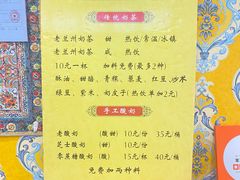 传统奶茶
老兰州奶茶 甜 热饮/常温/冰镇
老兰州奶茶 咸 热饮
10元一杯 加料免费(最多2种)
酥油、甜醅、青稞、藜麦、红豆、炒米
绿豆、紫米、奶皮子(热饮单加2元)
手工酸奶
老酸奶 (酸甜) 10元/份 35元/桶
芝士酸奶 (甜) 10元/份
零蔗糖酸奶 (酸) 15元/杯 40元/桶
免费加两种料